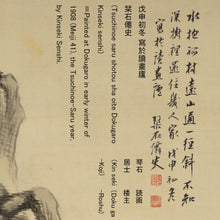 水抱孤村遠山通一徑斜不知
深樹裡還住幾人家戊申初冬
寫於讀畫廬 琹石僊史
琴石 読画
居士 楼主
(Kin seki (Doku ga
-Koji) -Roshu)
戊申初冬 寫於讀畫廬
琹石僊史
(Tsuchinoe saru shotou sha ote Dokugaro
Kinseki senshi)
=Painted at Dokugaro in early winter of
1908 (Meiji 41), the Tsuchinoe-Saru year,
by Kinseki Senshi.